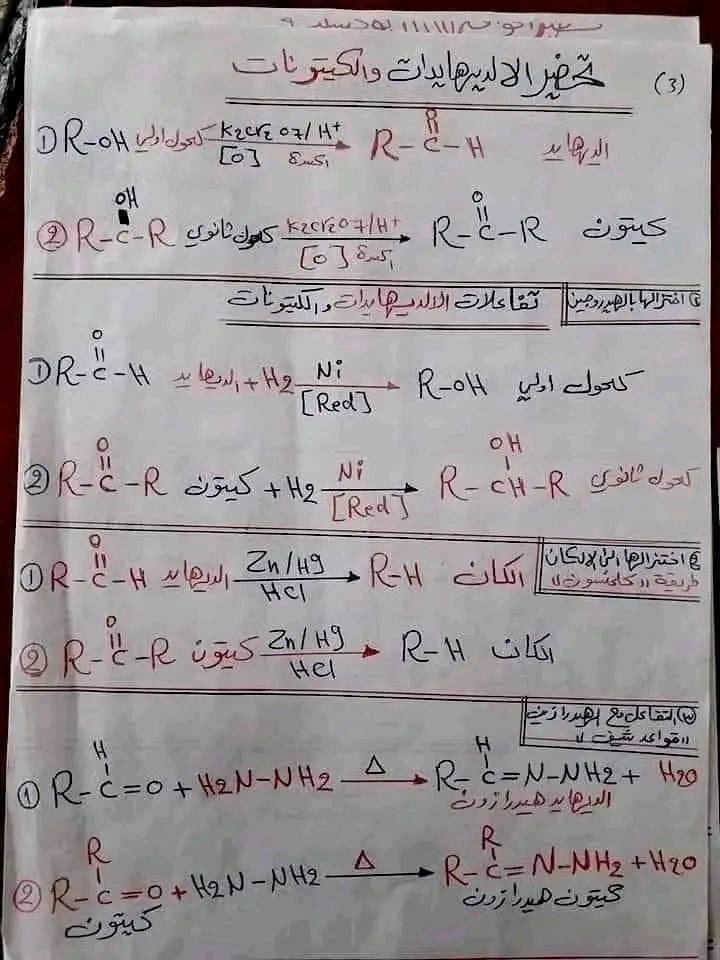 (3) تحضير الالديهايدات والكيتونات
① R-OH كحول اولي K2Cr2O7/H+ [O] اكسدة → R-C(=O)-H الديهايد
② R-C(OH)-R كحول ثانوي K2Cr2O7/H+ [O] اكسدة → R-C(=O)-R كيتون
تفاعلات الالديهايدات والكيتونات
① اختزالها بالهيدروجين
① R-C(=O)-H الديهايد + H2 Ni [Red] → R-OH كحول اولي
② R-C(=O)-R كيتون + H2 Ni [Red] → R-CH(OH)-R كحول ثانوي
② اختزالها الى الالكان
طريقة "كلمنسون"
① R-C(=O)-H الديهايد Zn/Hg HCl → R-H الكان
② R-C(=O)-R كيتون Zn/Hg HCl → R-H الكان
③ التفاعل مع الهيدرازين
"قواعد شيف"
① R-C(H)=O + H2N-NH2 Δ → R-C(H)=N-NH2 + H2O
الديهايد هيدرازون
② R-C(R)=O + H2N-NH2 Δ → R-C(R)=N-NH2 + H2O
كيتون
كيتون هيدرازون